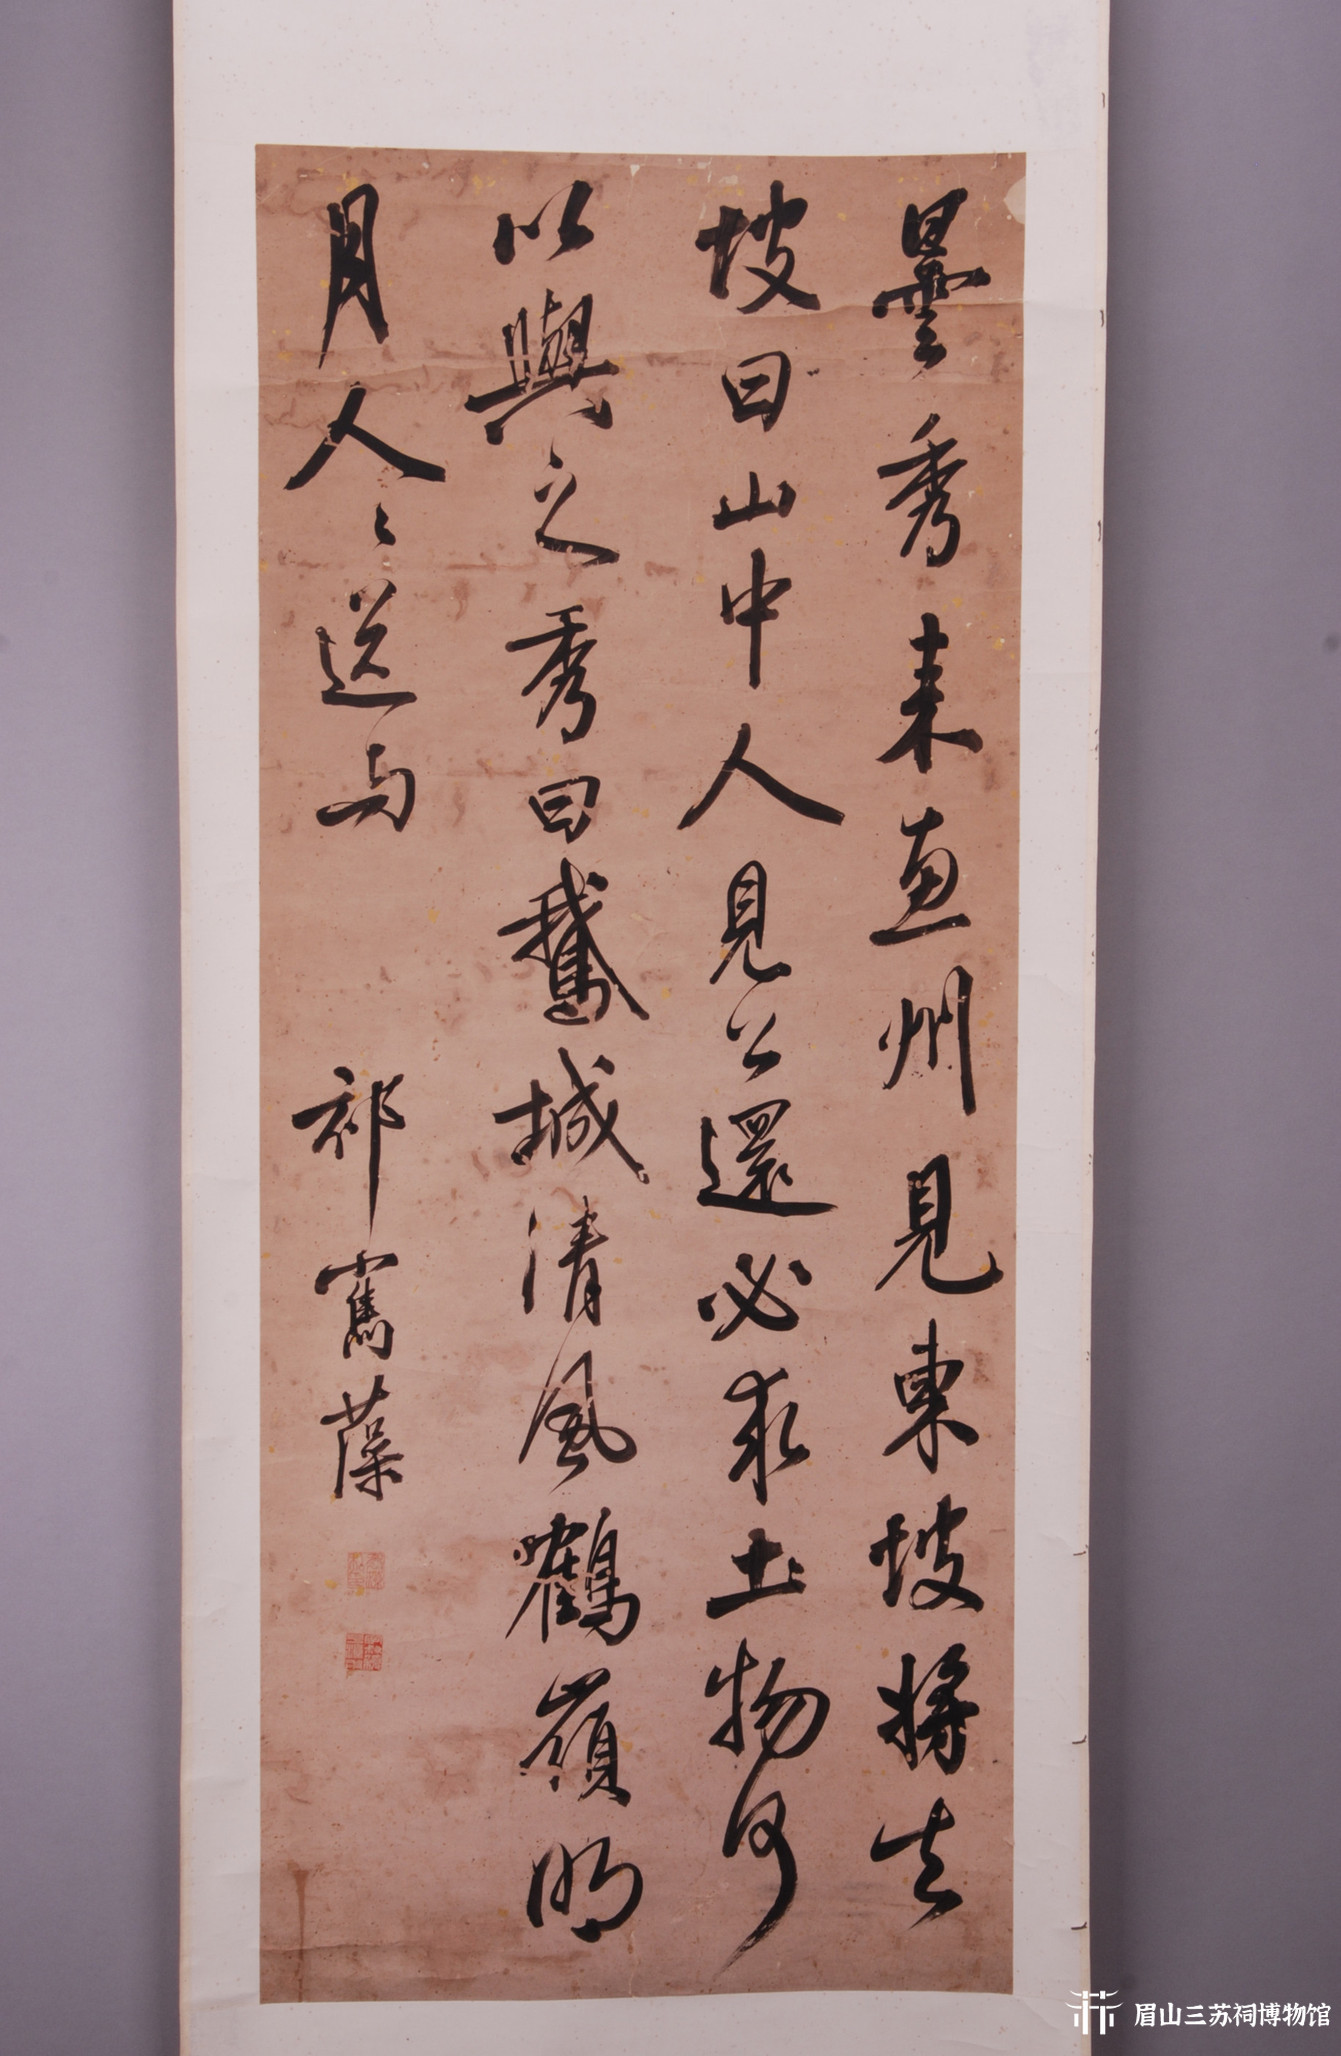 曇秀来惠州見東坡將去
坡曰山中人見公還必求土物何
以與之秀曰鵞城清風鶴嶺明
月人〻送与
祁寯藻
眉山三苏祠博物馆